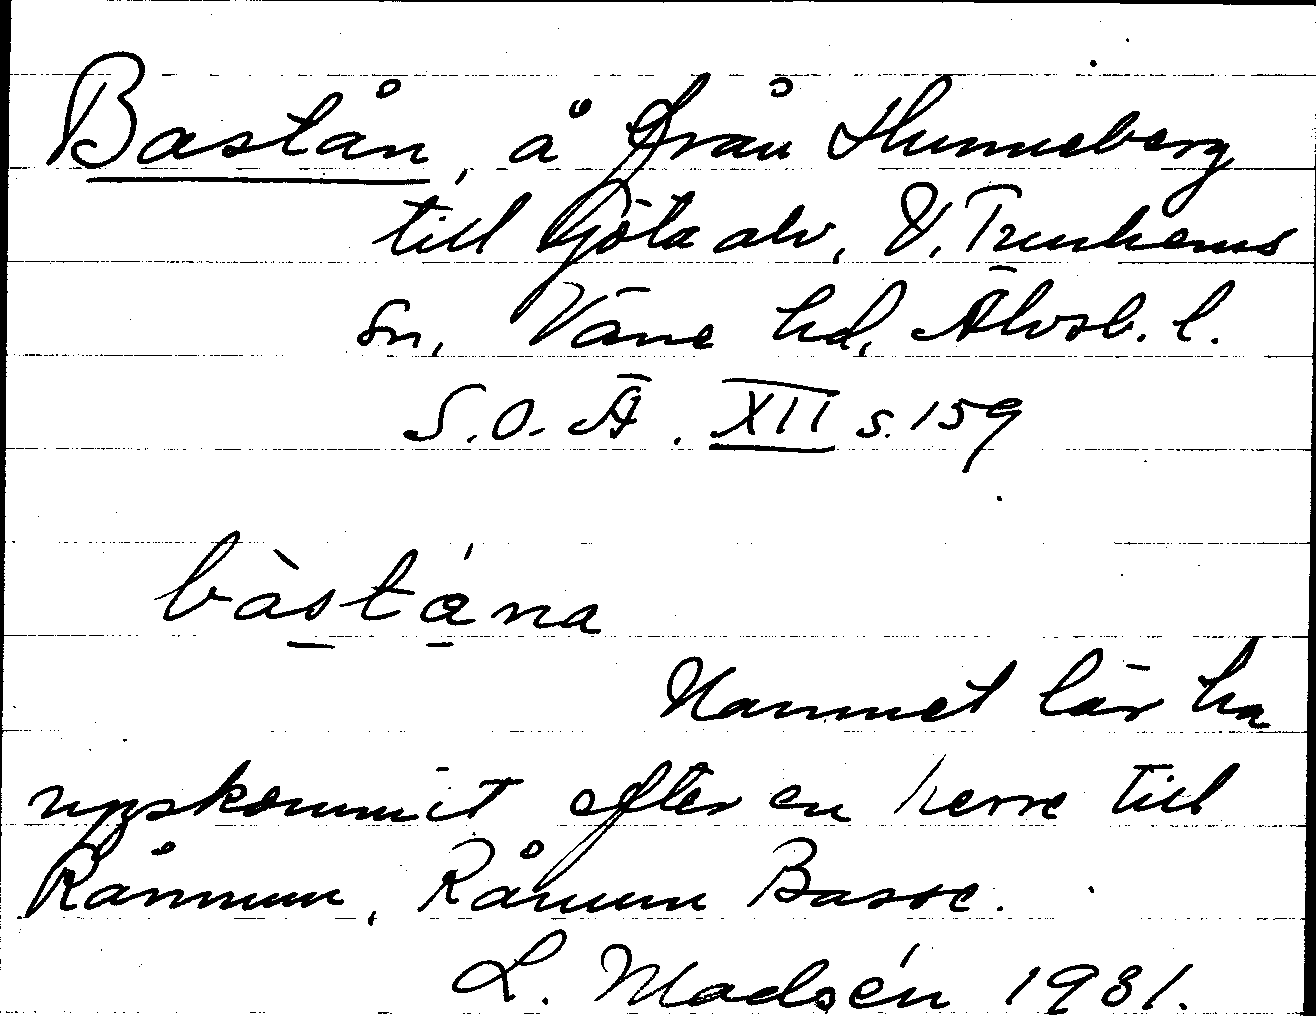 Bastån, å från Hunneberg
till Göta älv, V. Tunhems
sn, Väne hd, Älvsb. l.
S.O.Ä. XII s. 159
bàstána
Namnet lär ha
uppkommit efter en herre till
Rånnum, Basse.
L. Madsén 1931.